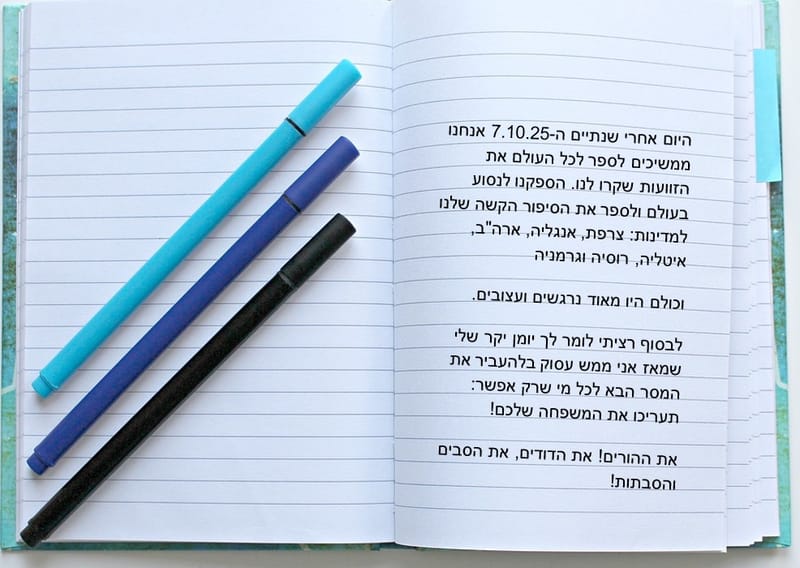 היום אחרי שנתיים ה-7.10.25 אנחנו
ממשיכים לספר לכל העולם את
הזוועות שקרו לנו. הספקנו לנסוע
בעולם ולספר את הסיפור הקשה שלנו
למדינות: צרפת, אנגליה, ארה"ב,
איטליה, רוסיה וגרמניה
וכולם היו מאוד נרגשים ועצובים.
לבסוף רציתי לומר לך יומן יקר שלי
שמאז אני ממש עסוק בלהעביר את
המסר הבא לכל מי שרק אפשר:
תעריכו את המשפחה שלכם!
את ההורים! את הדודים, את הסבים
והסבתות!